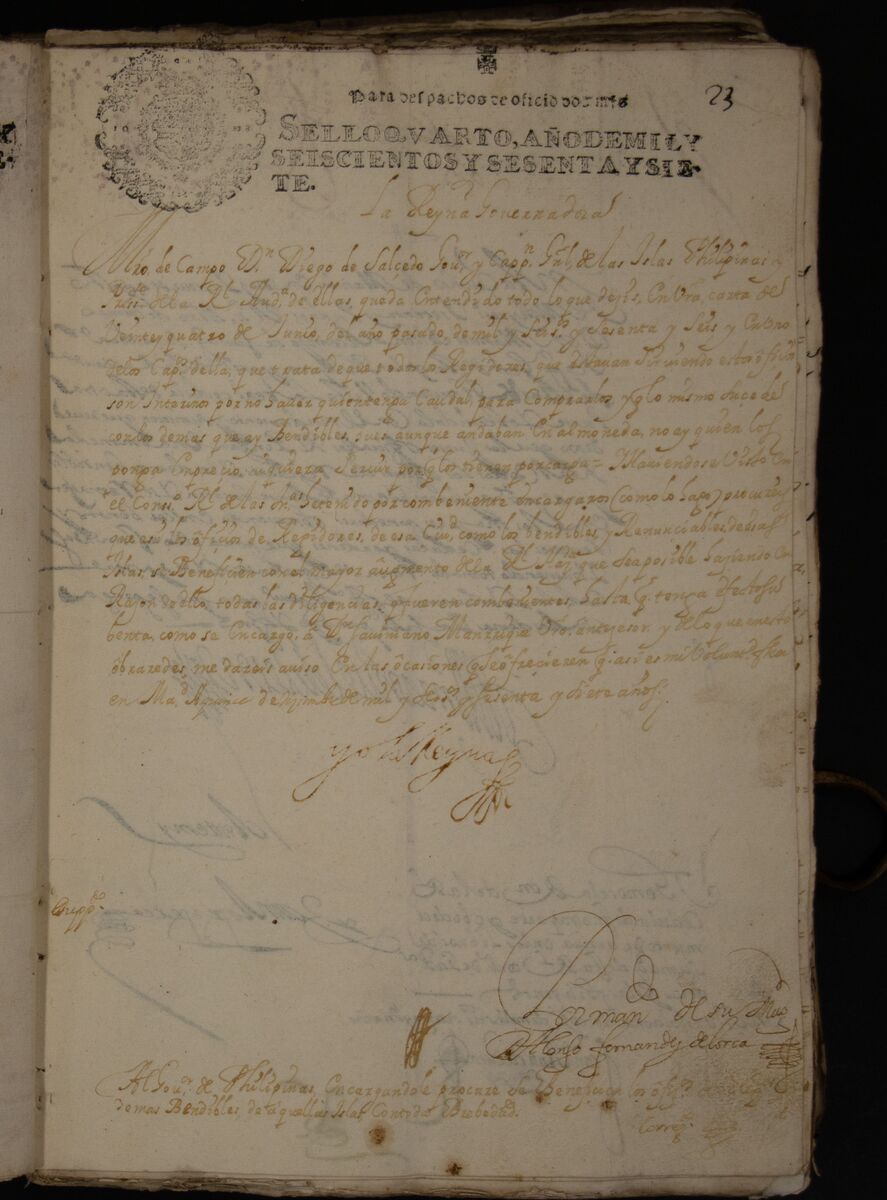 Para despachos de oficio dos mrs
23
SELLO QVARTO, AÑO DE MIL Y
SEISCIENTOS Y SESENTA Y SIE-
TE.
La Reyna Governadora
Mro. de Campo Dn Diego de Salcedo Gour. y Cappn. Gnl. de las Islas Philipinas y
Press.te de la Rl. Audª. de ellas, queda entendido todo lo que dezis, En Vra, carta de
Veinte y quatro de Junio, del año pasado, de mil y seisºs y sesenta y seis y en vno
de los Capºs della, que trata de que todos los Regidores, que estauan siruiendo estos ofiçios
son interinos por no hauer quien tenga Caudal, para Comprarlos y q lo mismo suçede
con los demas que ay Bendibles, pues aunque andaban En almoneda, no ay quien los
ponga En preçio, ni quiera seruir por q los tienen por carga = Hauiendose Visto En
el Consº. Rl. de las Inªs he tenido por combeniente encargaros (como lo hago) procureis
que esos ofiçios de Regidores, de esa Ciud, como los bendibles y Renunciables, de esas
Islas, se Benefiçien con el mayor augmento de la Rl. Hazª. que sea posible haziendo En
Razon de ello, todas las diligencias, q fueren combenientes, hasta q. tenga efecto su
benta, como se Encargo, a Dn Sauiniano Manrrique Vro. anteçesor. y de lo que en esto
obraredes, me dareis auiso En las ocasiones q se ofrecieren q asi es mi Voluntd. fha
en Mad. A de septiembre de mil y seisºs y sesenta y siete años
yo la Reyna
Por mando. de su Magd.
Alonso fernandez de lorca
Al Gour. de Philipinas, Encargandole procure se Benefiçien los ofiçºs de y
demas Bendibles, de aquellas Islas Con todo
Correg.da